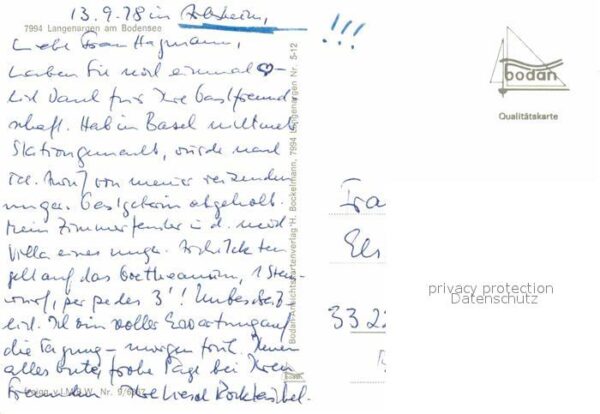 13.9.78 in Arlesheim,
!!!
7994 Langenargen am Bodensee
Liebe Frau Hagmann,
haben Sie noch einmal ♡-
lich Dank für Ihre Gastfreund
schaft. Hab in Basel nicht mehr
Station gemacht, wurde nach
Tel. Anruf von meiner reizenden
ungar. Gastgeberin abgeholt.
Mein Zimmerfenster i. d.
Villa eines ungar. Architekten
geht auf das Goetheanum, 1 Stein
wurf, per pedes 3'! Unbeschreib
lich. Ich bin voller Erwartung auf
die Tagung – morgen früh. Ihnen
alles Gute, frohe Tage bei Ihren
Freunden Ihre Liesel
Bodan-Ansichtskartenverlag H. Bockelmann, 7994 Langenargen Nr. 5-12
bodan
Qualitätskarte
Fra
Els
privacy protection
Datenschutz
33 22